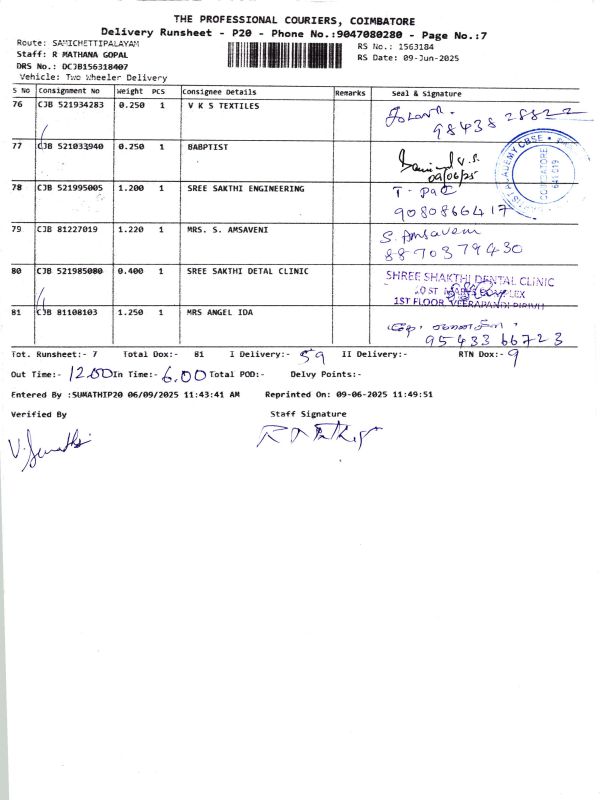 THE PROFESSIONAL COURIERS, COIMBATORE
Delivery Runsheet - P20 - Phone No.:9047080280 - Page No.:7
Route: SAMICHETTIPALAYAM
Staff: R MATHANA GOPAL
DRS No.: DCJB156318407
Vehicle: Two Wheeler Delivery
RS No.: 1563184
RS Date: 09-Jun-2025
S No Consignment No Weight PCS Consignee Details Remarks Seal & Signature
76 CJB 521934283 0.250 1 V K S TEXTILES
98438 28822
77 CJB 521033940 0.250 1 BABPTIST
09/06/25
ACADEMY CBSE
COIMBATORE
78 CJB 521995005 1.200 1 SREE SAKTHI ENGINEERING
9080866417
79 CJB 81227019 1.220 1 MRS. S. AMSAVENI
S. Amsaveni
8870379430
80 CJB 521985080 0.400 1 SREE SAKTHI DETAL CLINIC
SHREE SHAKTHI DENTAL CLINIC
1ST FLOOR, VEERAPANDI PIRIVU
81 CJB 81108103 1.250 1 MRS ANGEL IDA
95433 66723
Tot. Runsheet:- 7 Total Dox:- 81 I Delivery:- 59 II Delivery:- RTN Dox:- 9
Out Time:- 12.00 In Time:- 6.00 Total POD:- Delvy Points:-
Entered By :SUMATHIP20 06/09/2025 11:43:41 AM Reprinted On: 09-06-2025 11:49:51
Verified By Staff Signature
V. Sumathi